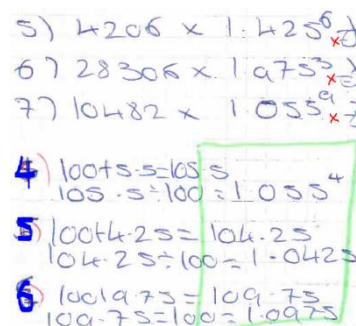 5) 4206 x 1.425⁶ x
6) 28306 x 1.975³ x
7) 10482 x 1.055⁹ x
4) 100+5.5=105.5
105.5÷100=1.055⁴
5) 100+4.25= 104.25
104.25÷100=1.0425
6) 10019.75= 109.75
109.75=100=1.0975